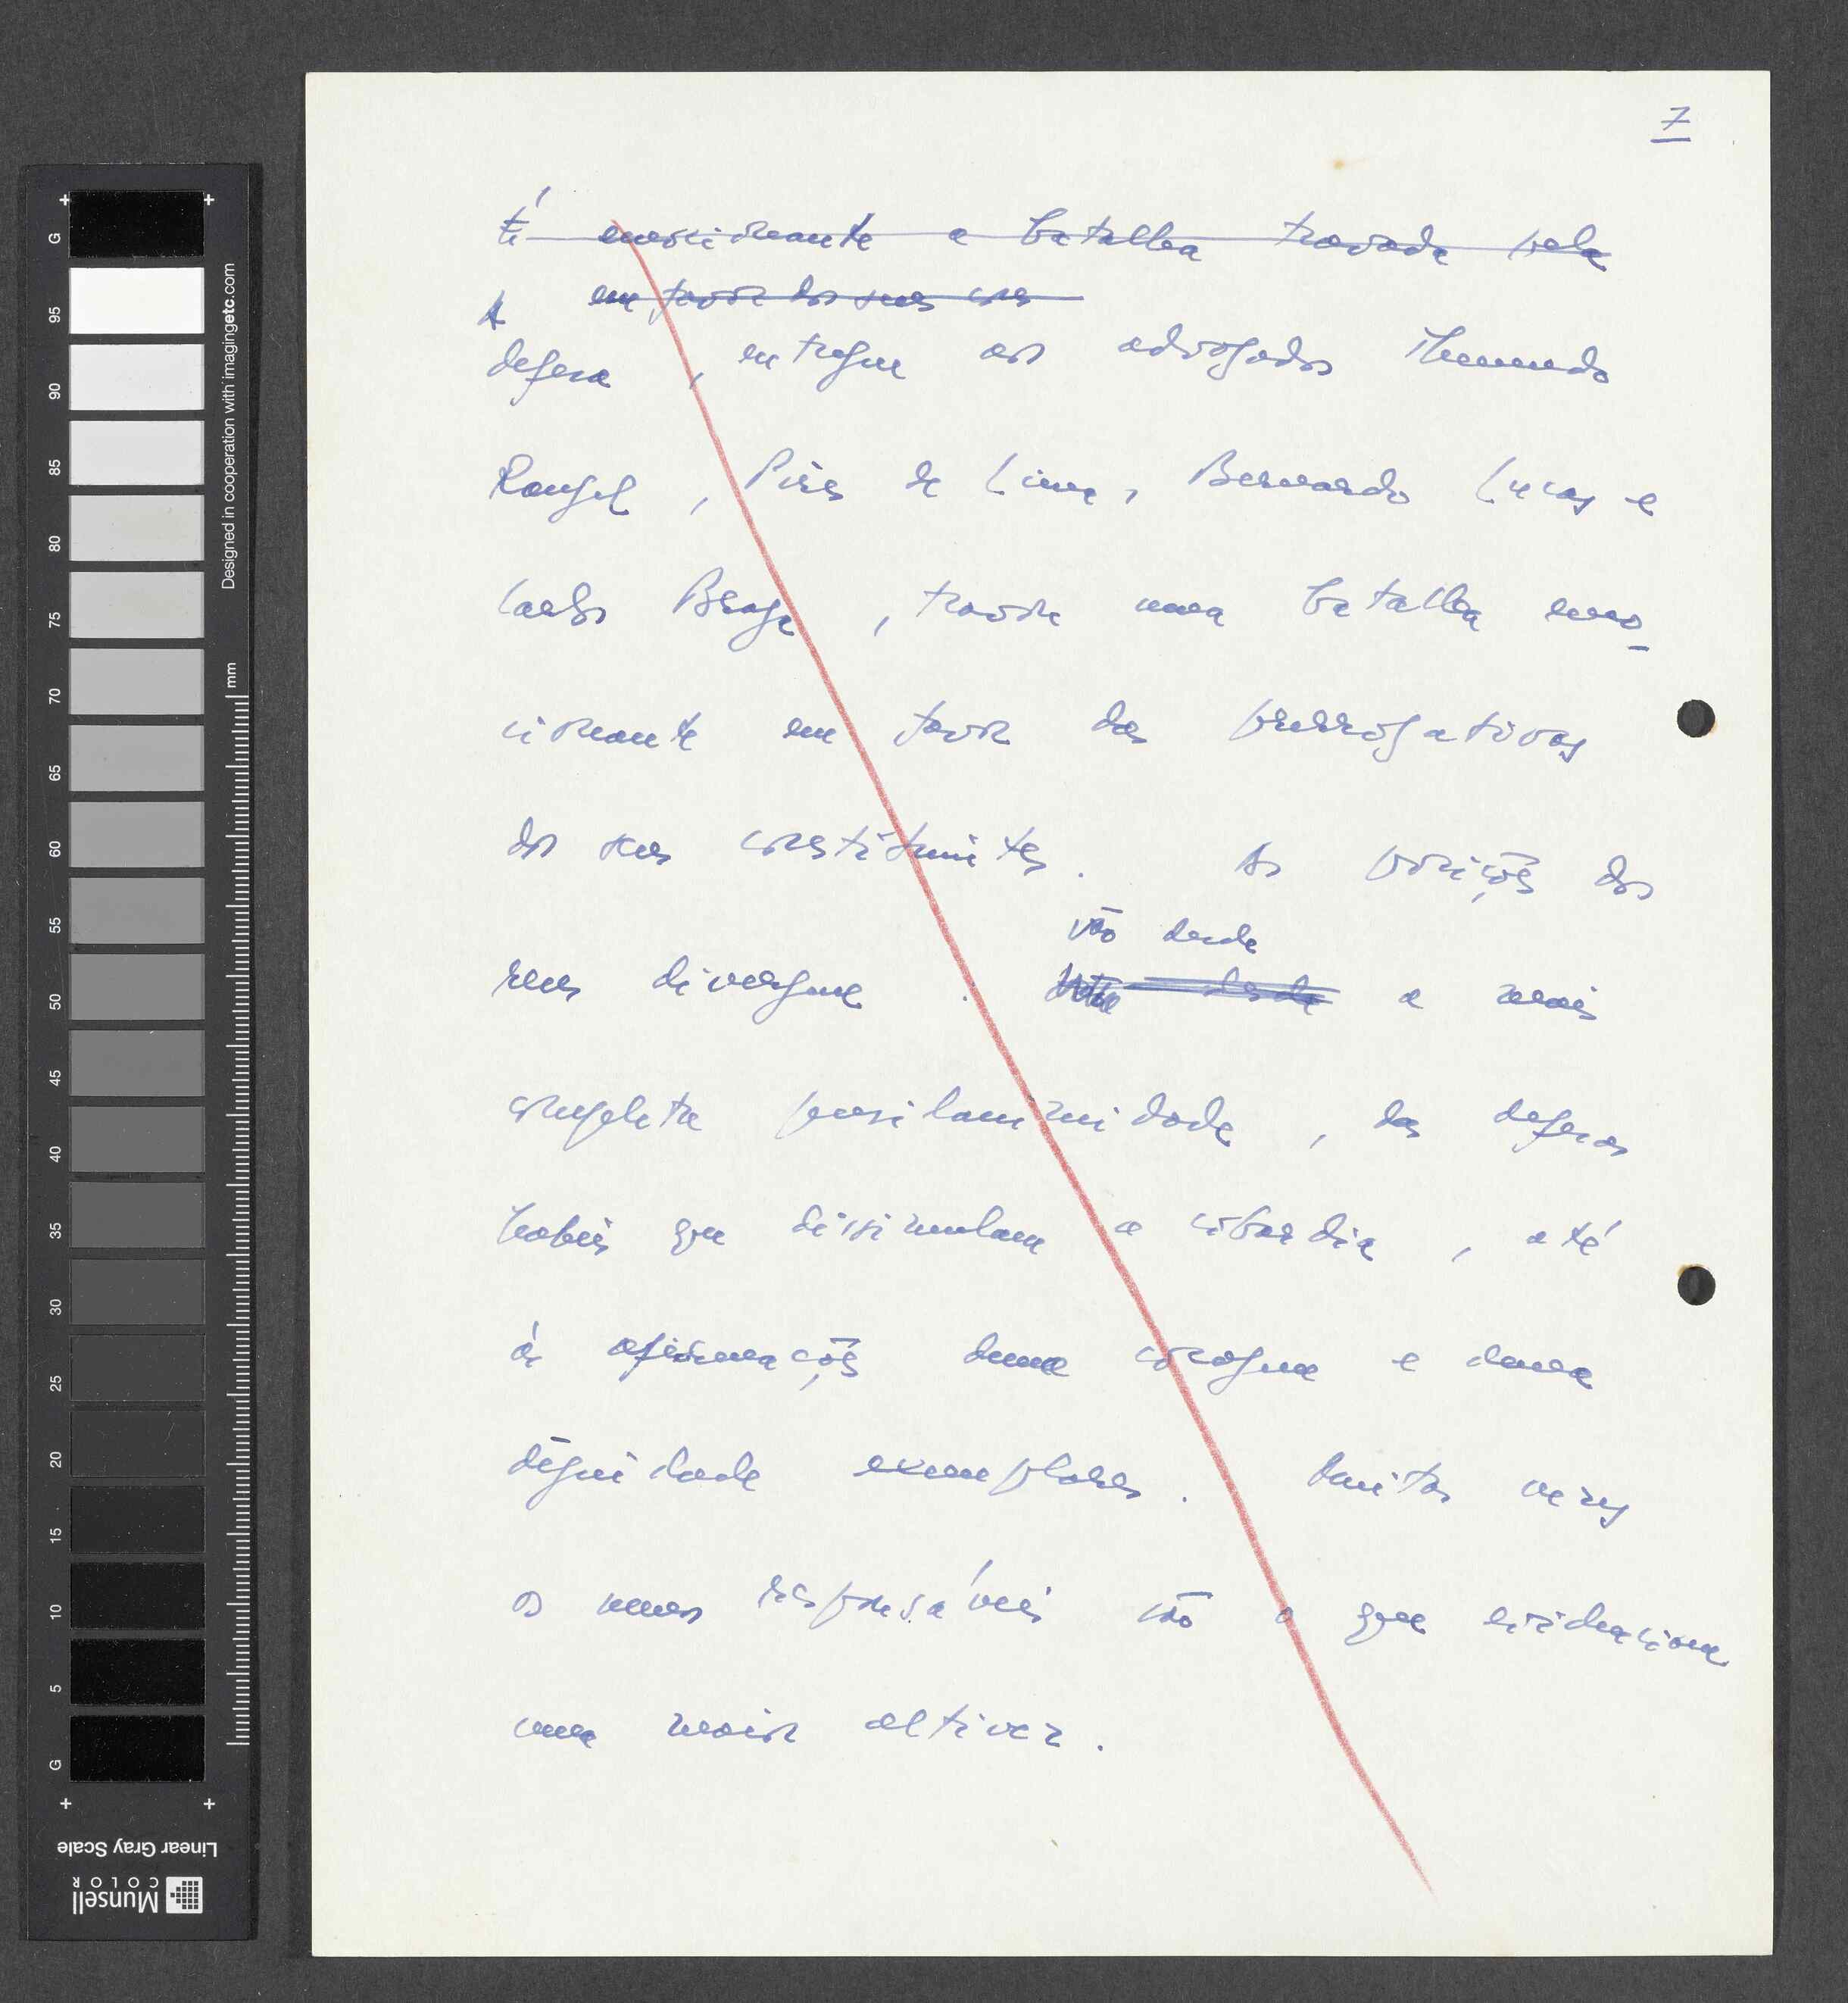 7
É emocionante a batalha travada pela
em favor dos seus cons
A
defesa, entregue aos advogados
Rangel, Pires de Lima, Bernardo Lucas e
Carlos Braga, travou uma batalha emo-
cionante em favor das prerrogativas
dos seus constituintes. As posições dos
vão desde
reus divergem. desde a mais
completa pusilanimidade, das defesas
habeis que dissimulam a cobardia, até
às afirmações duma coragem e duma
dignidade exemplares. Muitas vezes
os menos responsáveis são os que evidenciam
uma maior altivez.
G
95
90
85
80
75
70
65
60
55
50
45
40
35
30
25
20
15
10
5
G
Designed in cooperation with imagingetc.com
mm
Linear Gray Scale
Munsell
COLOR